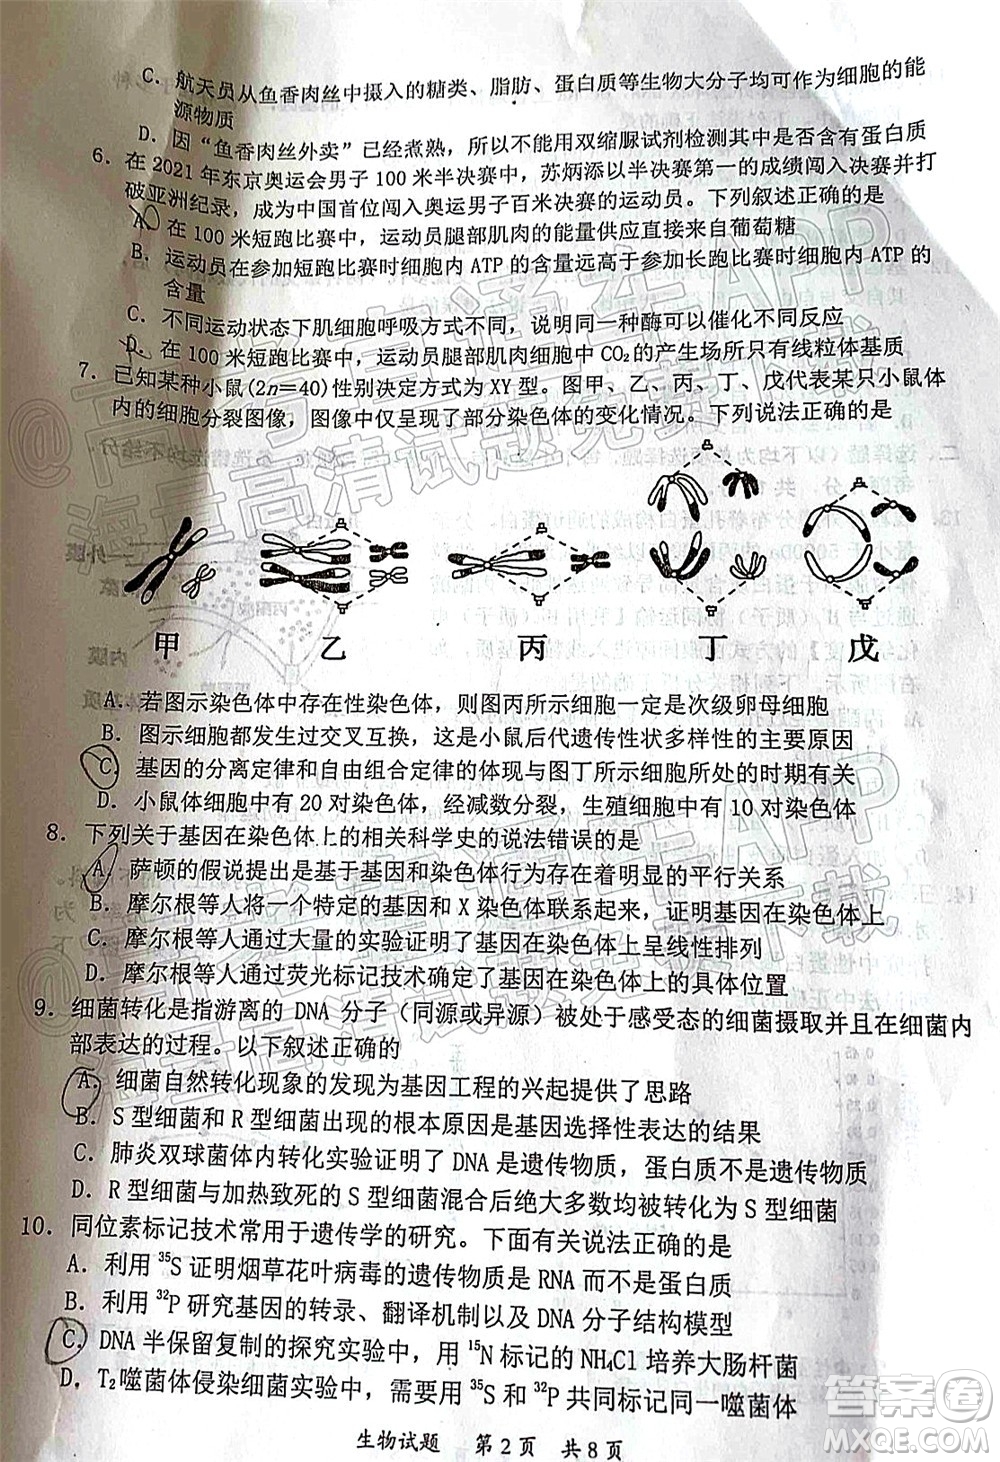 C．航天员从鱼香肉丝中摄入的糖类、脂肪、蛋白质等生物大分子均可作为细胞的能
源物质
D．因“鱼香肉丝外卖”已经煮熟，所以不能用双缩脲试剂检测其中是否含有蛋白质
6．在 2021 年东京奥运会男子 100 米半决赛中，苏炳添以半决赛第一的成绩闯入决赛并打
破亚洲纪录，成为中国首位闯入奥运男子百米决赛的运动员。下列叙述正确的是
A．在 100 米短跑比赛中，运动员腿部肌肉的能量供应直接来自葡萄糖
B．运动员在参加短跑比赛时细胞内 ATP 的含量远高于参加长跑比赛时细胞内 ATP 的
含量
C．不同运动状态下肌细胞呼吸方式不同，说明同一种酶可以催化不同反应
D．在 100 米短跑比赛中，运动员腿部肌肉细胞中 CO₂的产生场所只有线粒体基质
7．已知某种小鼠(2n＝40)性别决定方式为 XY 型。图甲、乙、丙、丁、戊代表某只小鼠体
内的细胞分裂图像，图像中仅呈现了部分染色体的变化情况。下列说法正确的是
甲 乙 丙 丁 戊
A．若图示染色体中存在性染色体，则图丙所示细胞一定是次级卵母细胞
B．图示细胞都发生过交叉互换，这是小鼠后代遗传性状多样性的主要原因
C．基因的分离定律和自由组合定律的体现与图丁所示细胞所处的时期有关
D．小鼠体细胞中有 20 对染色体，经减数分裂，生殖细胞中有 10 对染色体
8．下列关于基因在染色体上的相关科学史的说法错误的是
A．萨顿的假说提出是基于基因和染色体行为存在着明显的平行关系
B．摩尔根等人将一个特定的基因和 X 染色体联系起来，证明基因在染色体上
C．摩尔根等人通过大量的实验证明了基因在染色体上呈线性排列
D．摩尔根等人通过荧光标记技术确定了基因在染色体上的具体位置
9．细菌转化是指游离的 DNA 分子（同源或异源）被处于感受态的细菌摄取并且在细菌内
部表达的过程。以下叙述正确的
A．细菌自然转化现象的发现为基因工程的兴起提供了思路
B．S 型细菌和 R 型细菌出现的根本原因是基因选择性表达的结果
C．肺炎双球菌体内转化实验证明了 DNA 是遗传物质，蛋白质不是遗传物质
D．R 型细菌与加热致死的 S 型细菌混合后绝大多数均被转化为 S 型细菌
10．同位素标记技术常用于遗传学的研究。下面有关说法正确的是
A．利用 ³⁵S 证明烟草花叶病毒的遗传物质是 RNA 而不是蛋白质
B．利用 ³²P 研究基因的转录、翻译机制以及 DNA 分子结构模型
C．DNA 半保留复制的探究实验中，用 ¹⁵N 标记的 NH₄Cl 培养大肠杆菌
D．T₂噬菌体侵染细菌实验中，需要用 ³⁵S 和 ³²P 共同标记同一噬菌体
生物试题 第 2 页 共 8 页
答案圈
MXQE.COM
@高考直通车APP
海量高清试题免费下载
@高考直通车APP
海量高清试题免费下载